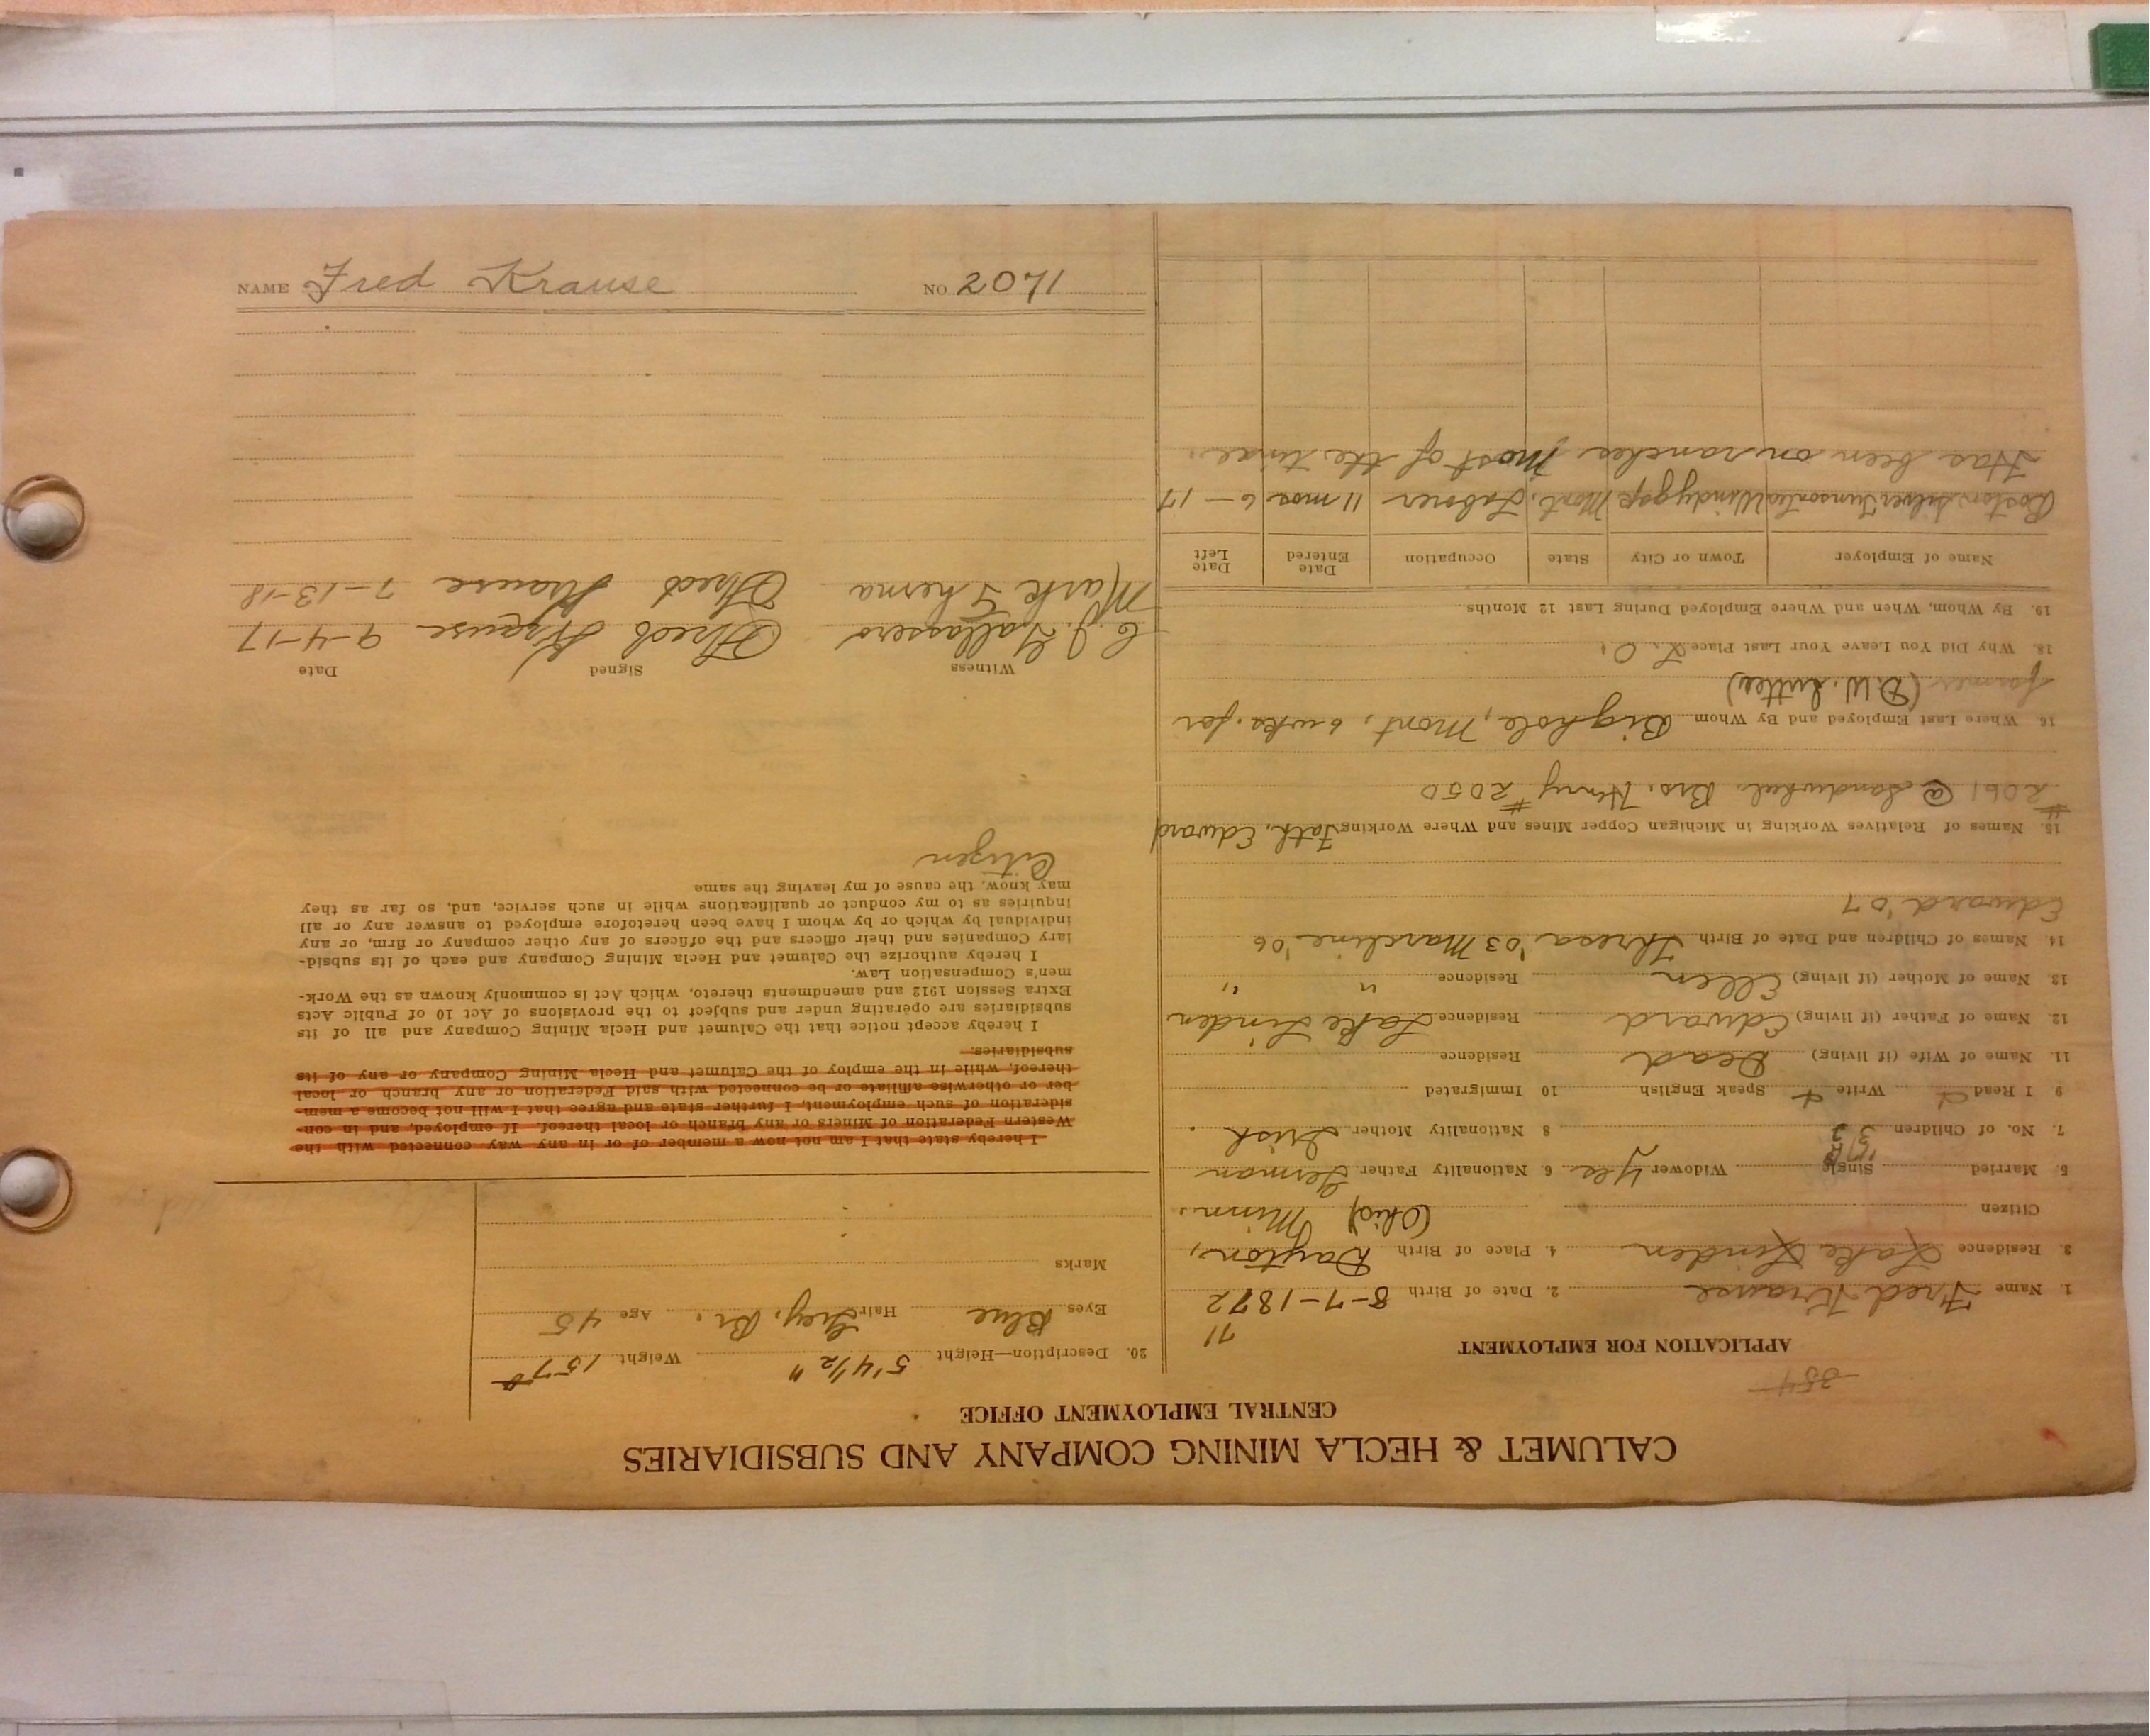 CALUMET & HECLA MINING COMPANY AND SUBSIDIARIES
CENTRAL EMPLOYMENT OFFICE
354
APPLICATION FOR EMPLOYMENT
71
1. Name Fred Krause 2. Date of Birth 8-7-1872
3. Residence Lake Linden 4. Place of Birth Dayton,
Citizen (Ohio) Minn.
5. Married Single Widower Yes 6. Nationality Father German
7. No. of Children 3 8 Nationality Mother Irish
9 I Read Write Speak English 10 Immigrated
11. Name of Wife (if living) Dead Residence
12. Name of Father (if living) Edward Residence Lake Linden
13. Name of Mother (if living) Ellen Residence " "
14. Names of Children and Date of Birth Thresa '03 Marcline '06
Edward '07
15. Names of Relatives Working in Michigan Copper Mines and Where Working Fath. Edward
#2061 @ Sandwheel. Bro. Henry #2050
16. Where Last Employed and By Whom Bighole, Mont, 6 wks. for
farmer (D.W. )
18. Why Did You Leave Your Last Place L. O.
19. By Whom, When and Where Employed During Last 12 Months
Name of Employer Town or City State Occupation Date Entered Date Left
Boston Silver Windygap Mont. Laborer 11 mos 6-17
Has been on ranches most of the time.
20. Description—Height 5' 4 1/2" Weight 157
Eyes Blue Hair Grey, Br. Age 45
Marks
I hereby state that I am not now a member of or in any way connected with the
Western Federation of Miners or any branch or local thereof. If employed, and in con-
sideration of such employment, I further state and agree that I will not become a mem-
ber or otherwise affiliate or be connected with said Federation or any branch or local
thereof, while in the employ of the Calumet and Hecla Mining Company or any of its
subsidiaries.
I hereby accept notice that the Calumet and Hecla Mining Company and all of its
subsidiaries are operating under and subject to the provisions of Act 10 of Public Acts
Extra Session 1912 and amendments thereto, which Act is commonly known as the Work-
men's Compensation Law.
I hereby authorize the Calumet and Hecla Mining Company and each of its subsid-
iary Companies and their officers and the officers of any other company or firm, or any
individual by which or by whom I have been heretofore employed to answer any or all
inquiries as to my conduct or qualifications while in such service, and, so far as they
may know, the cause of my leaving the same
Citizen
Witness Signed Date
C. J. Gallassero Fred Krause 9-4-17
Mark Fred Krause 7-13-18
NAME Fred Krause NO. 2071